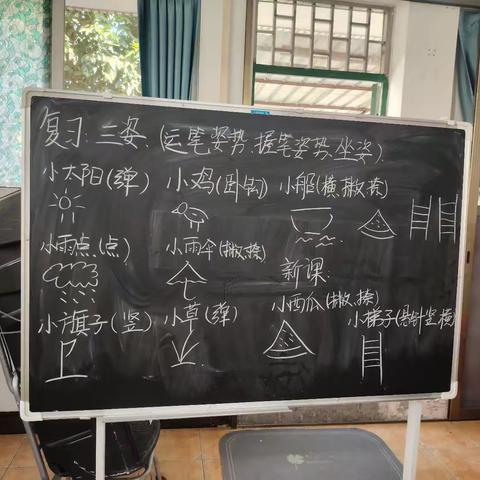 复习:三姿.(运笔姿势.握笔姿势.坐姿).
小太阳(弹) 小鸡(卧钩) 小船(横.撇.捺)
小雨点(点) 小雨伞(撇.捺)
新课:
小旗子(竖) 小草(弹) 小西瓜(撇.捺)
小梯子(悬针竖.横)